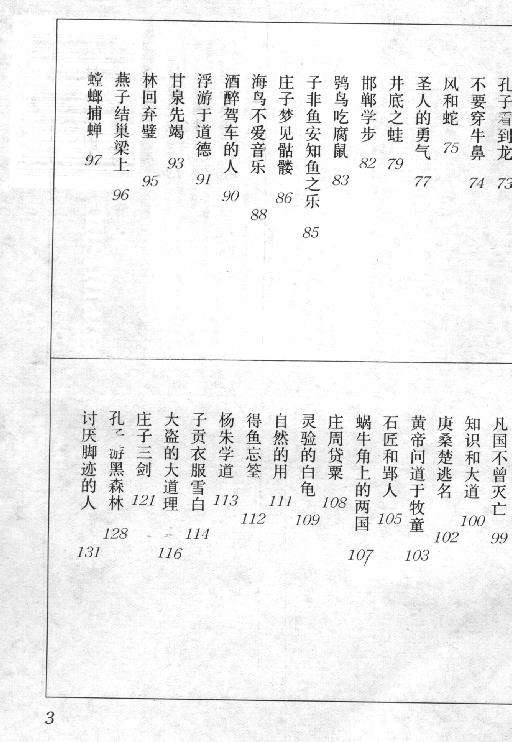 孔子看到龙 73
不要穿牛鼻 74
风和蛇 75
圣人的勇气 77
井底之蛙 79
邯郸学步 82
鹗鸟吃腐鼠 83
子非鱼安知鱼之乐 85
庄子梦见骷髅 86
海鸟不爱音乐 88
酒醉驾车的人 90
浮游于道德 91
甘泉先竭 93
林回弃璧 95
燕子结巢梁上 96
螳螂捕蝉 97
凡国不曾灭亡 99
知识和大道 100
庚桑楚逃名 102
黄帝问道于牧童 103
石匠和郢人 105
蜗牛角上的两国 107
庄周贷粟 108
灵验的白龟 109
自然的用 111
得鱼忘筌 112
杨朱学道 113
子贡衣服雪白 114
大盗的大道理 116
庄子三剑 121
孔子游黑森林 128
讨厌脚迹的人 131
3